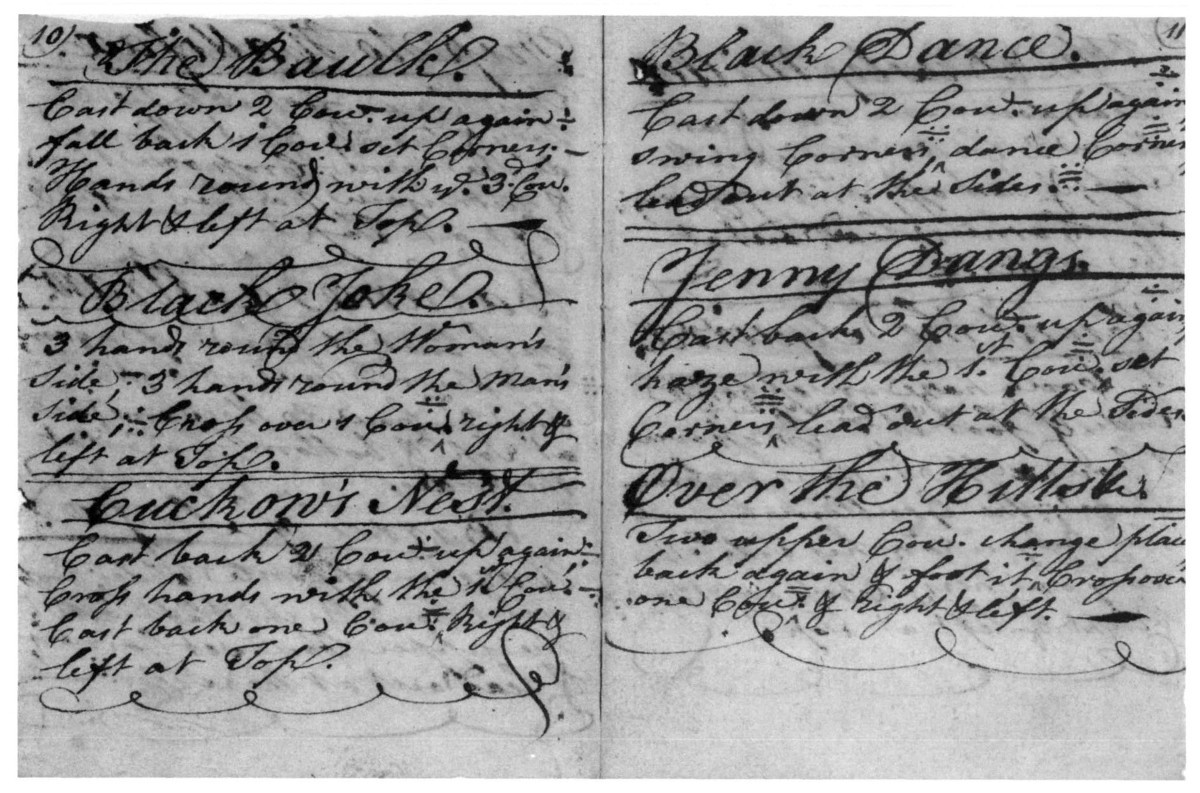 10)
The Baulk.
Cast down 2 Cou. up again
fall back 1 Cou: set Corners.
Hands round with ye. 3d. Cou.
Right & left at Top.
Black Joke.
3 hands round the Woman's
side 3 hands round the Man's
side, Cross over 1 Cou. right &
left at Top.
Cuckow's Nest.
Cast back 2 Cou. up again
Cross hands with the 1st. Cou.
Cast back one Cou. Right &
left at Top.
(11
Black Dance.
Cast down 2 Cou. up again
swing Corners, dance Corners
lead out at the Sides.
Jenny Dangs.
Cast back 2 Cou. up again
haze with the 1st. Cou. set
Corners, lead out at the Sides
Over the Hills &c.
Two upper Cou. change place
back again & foot it, Cross over
one Cou. & Right & left.